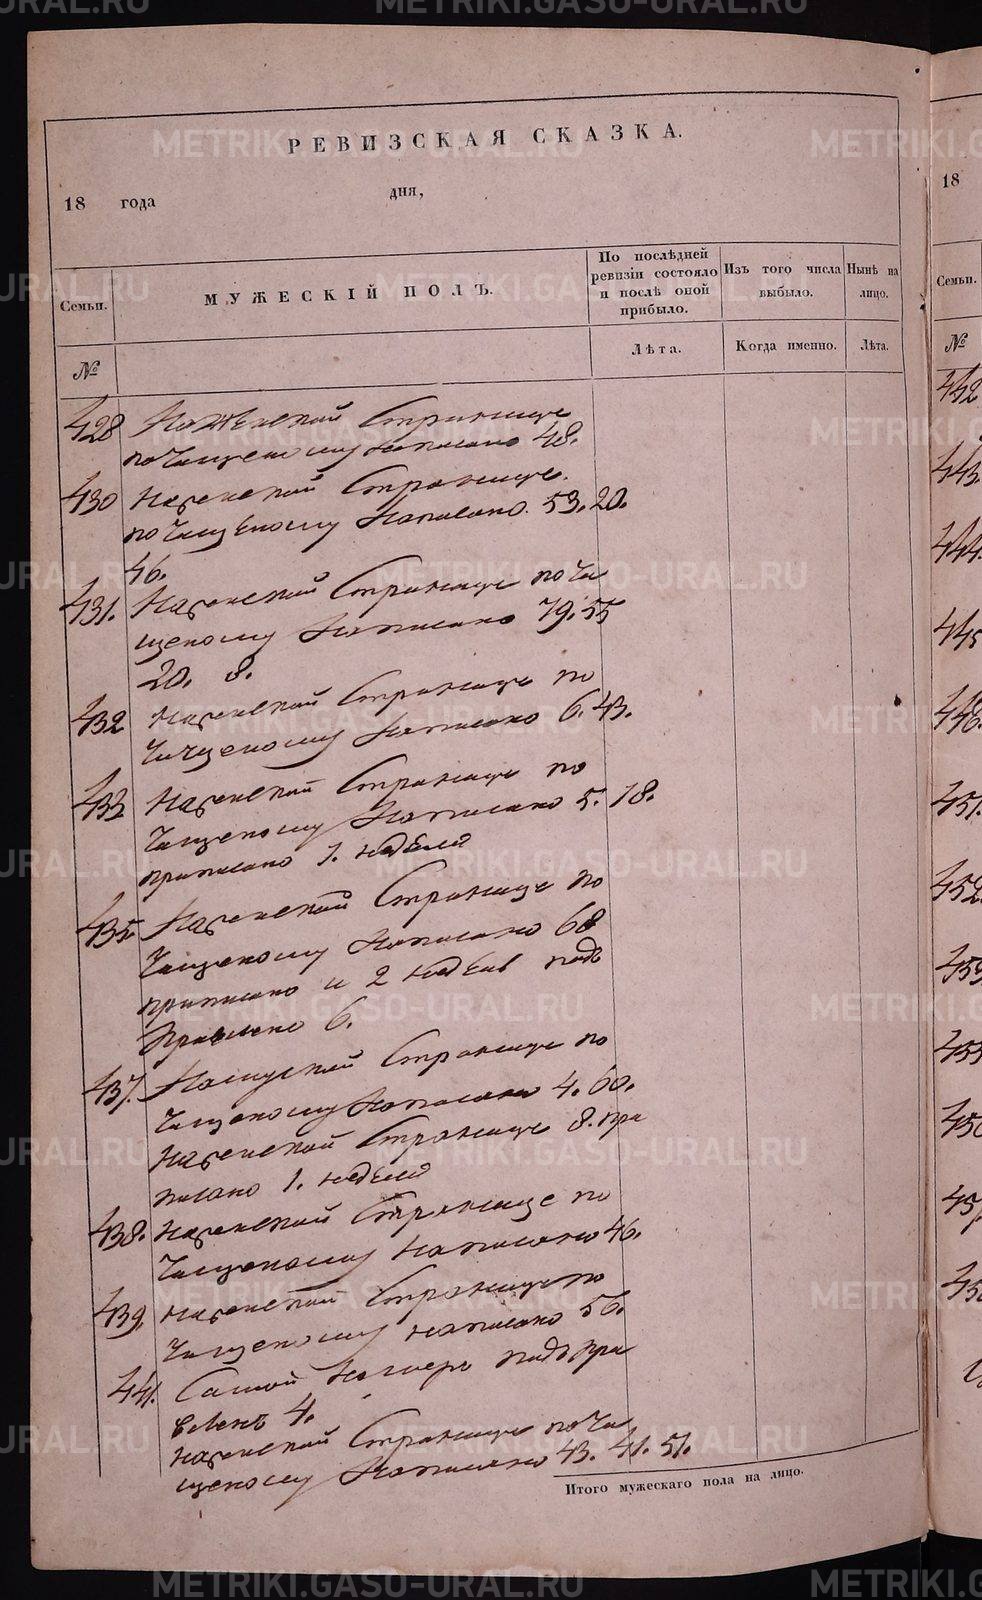 РЕВИЗСКАЯ СКАЗКА.
18 года дня,
Семьи.
МУЖЕСКІЙ ПОЛЪ.
По послѣдней ревизіи состояло и послѣ оной прибыло.
Изъ того числа выбыло.
Нынѣ на лицо.
№
Лѣта.
Когда именно.
Лѣта.
428 На Женской Странице
по Чищеному Написано 48.
430 На женской Странице.
по Чищеному Написано. 53. 20.
46.
431. На женской Странице по Чи
щеному Написано 79. 55
20. 8.
432 На женской Странице по
Чищеному Написано 6. 43.
433 На женской Странице по
Чищеному Написано 5. 18.
приписано 1. неделя
435. На женской Странице по
Чищеному Написано 68
приписано и 2 недель подъ
Правлено 6.
437. На мужской Странице по
Чищеному Написано 4. 60.
На женской Странице 8. при
писано 1. неделя
438. На женской Странице по
Чищеному Написано 46.
439. На женской Странице по
Чищеному Написано 56.
441. Самой Номеръ подъ пра
вленъ 4.
На женской Странице по Чи
щеному Написано 43. 41. 51.
Итого мужескаго пола на лицо.
18
Семьи.
№
442
443.
444.
445
446.
451.
452.
METRIKI.GASO-URAL.RU